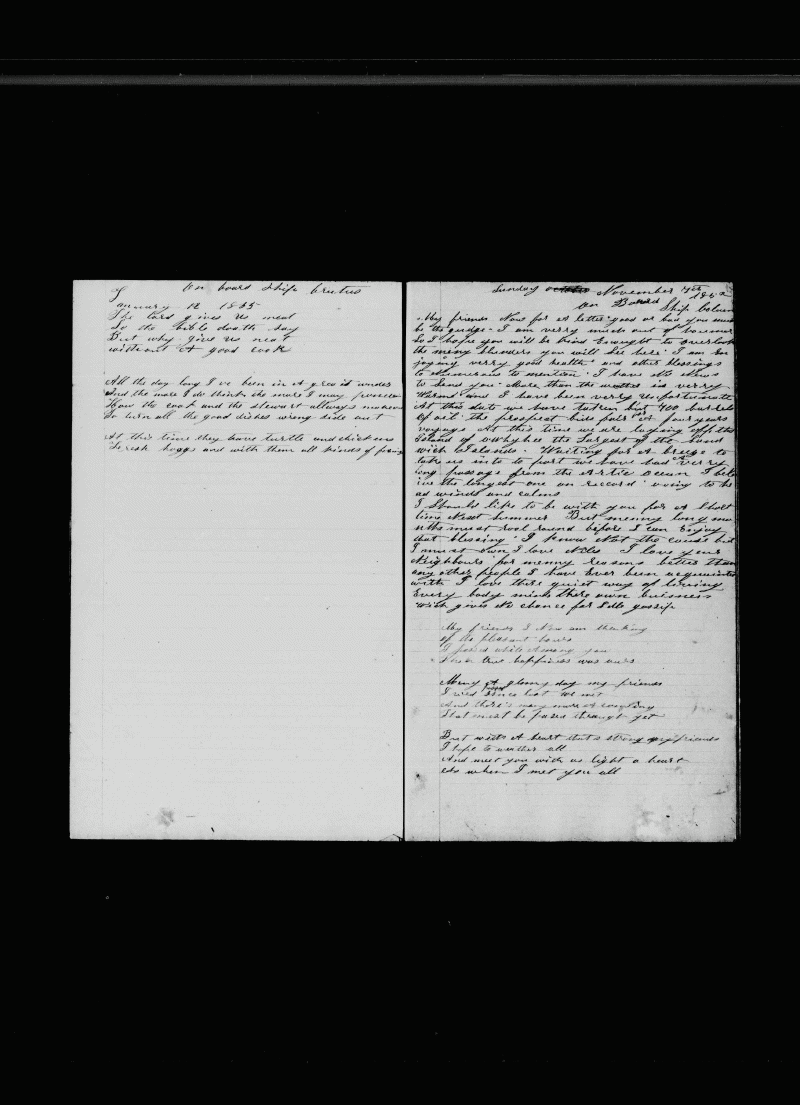 On board Ship Brutus
January 12 1855
The lord gives us meat
So the bible doath say
But why give us meat
without A good cook
All the day long I've been in A grea'd
And the more I do think the more I may
How the cook and the stewart allways
To turn all the good dishes wrong side out
At this time they have turtle and chickens
Fresh hoggs and with them all kinds of
Sunday November 185
On Board Ship
My friends Now for A letter good or bad you must
be the gudge. I am verry much out of
So I hope you will be kind Enought to overlook
the meny blunders you will see here. I am
joying verry good health and other blessings
to numerous to mention. I have No News
to send you. More than the weather is verry
Warm and I have been verry Unfortunate
At this date we have taken but 400 barrels
Of oil. the prospect bids fair for a four years
voyage. At this time we are laying off the
Island of owhyhee the Largest of the Sand
wich Islands. Waiting for A breeze to
take us in to port we have had A verry
long passage from the Artic Ocean I bele
ive the longest one on reccord owing to he
ad winds and calms
I Should like to be with you for A Short
time Next Summer But menny long mo
nths must rool round before I can Enjoy
that blessing. I know Not the cause but
I must own I love I love your
Neighbours for menny reasons better than
any other people I have Ever been acquainted
with I love there quiet way of living
Every body minds there own buisness
wich gives No chance for Idle gossip
My friends I Now am thinking
of the pleasant hours
I passed while Among you
true happiness was ours
Meny A gloomy day my friends
I since last we met
And there's many more A coming
That must be passed through yet
But with A heart that's strong my friends
I hope to weather all
And meet you with as light a heart
As when I met you all